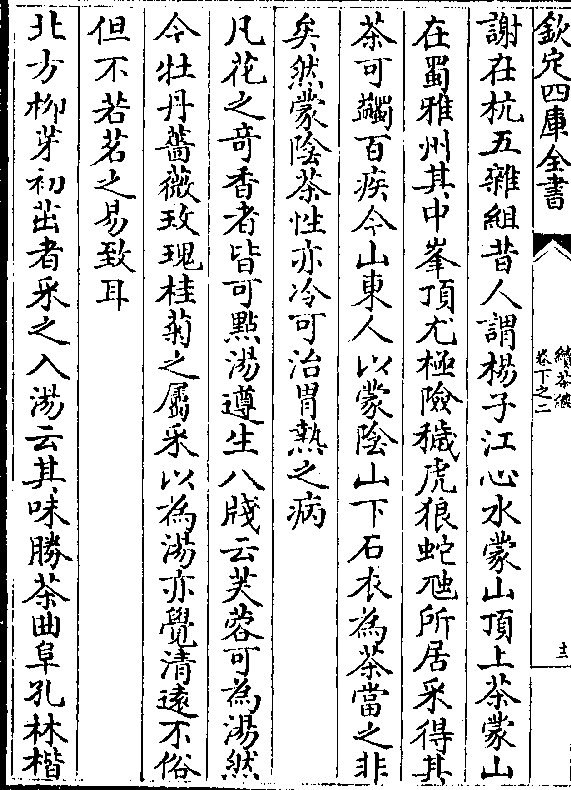 欽定四庫全書
續茶經
卷下之二
十三
謝在杭五雜組昔人謂楊子江心水蒙山頂上茶蒙山
在蜀雅州其中峯頂尤極險穢虎狼蛇虺所居采得其
茶可蠲百疾今山東人以蒙陰山下石衣為茶當之非
矣然蒙陰茶性亦冷可治胃熱之病
凡花之竒香者皆可點湯遵生八牋云芙蓉可為湯然
今牡丹薔薇玫瑰桂菊之屬采以為湯亦覺清逺不俗
但不若茗之易致耳
北方栁芽初茁者采之入湯云其味勝茶曲阜孔林楷